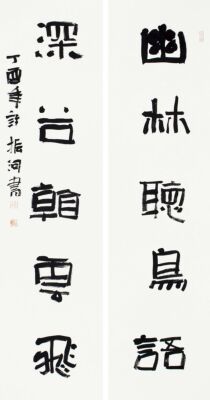 幽林聽鳥語
深谷韻雲飛
丁酉年許振河書